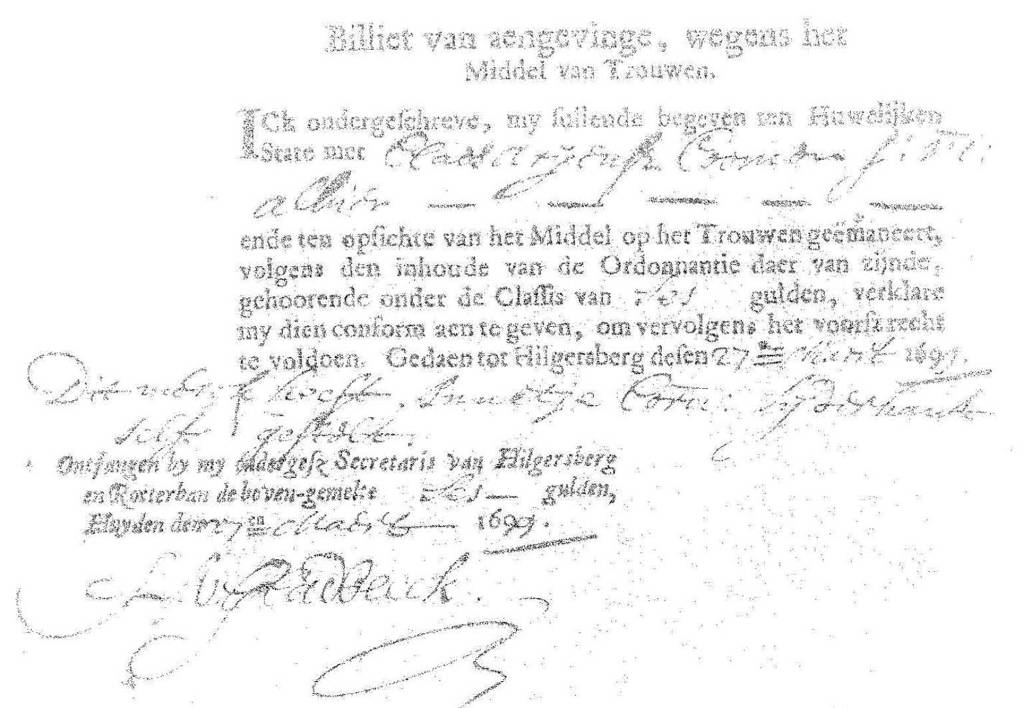 Billiet van aengevinge, wegens het
Middel van Trouwen.
ICk ondergeschreve, my sullende begeven ten Huwelijken
State met Claes Arijensz
alhier
ende ten opsichte van het Middel op het Trouwen geëmaneert,
volgens den inhoude van de Ordonnantie daer van zijnde,
gehoorende onder de Classis van ses gulden, verklare
my dien conform aen te geven, om vervolgens het voorsz recht
te voldoen. Gedaen tot Hilgersberg desen 27 Maert 1699.
Dit heeft Annetje Corn:
self gestelt.
Ontfangen by my ondergesz Secretaris van Hilgersberg
en Rotterban de boven-gemelte ses gulden,
Huyden den 27 en Maert 1699.